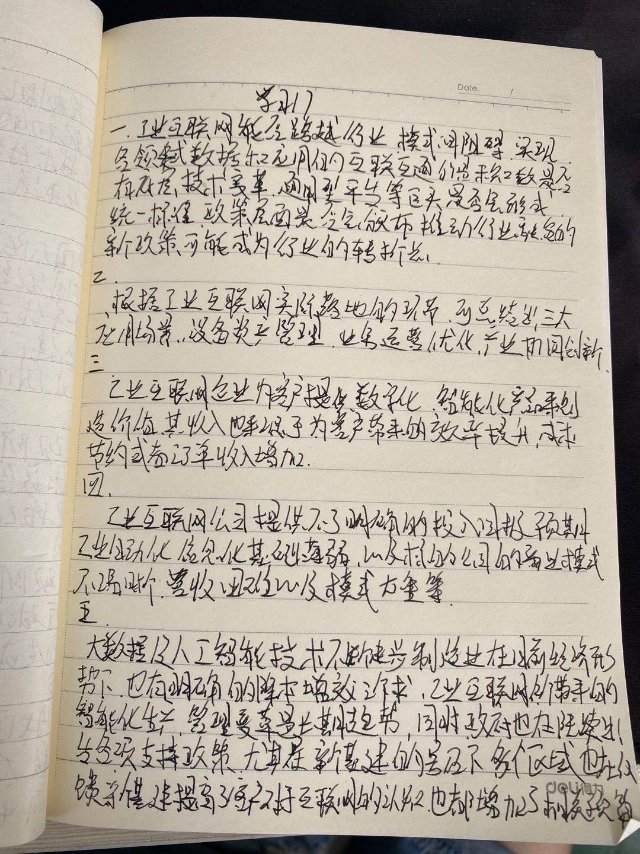 Date
学习17
一.工业互联网能否跨越行业 模式的阻碍.实现
各领域数据和应用的互联互通
技术变革.通用型平台等巨头是否会形成
统一标准 政策层面是否会颁布推动行业的
新政策.可能成为行业的转折点.
二.
根据工业互联网实际落地的环节 可总结出三大
应用场景.设备资产管理.业务运营优化.产业协同创新.
三
工业互联网企业为客户提供数字化.智能化产品来创
造价值 其收入也来源于为客户带来的效率提升,成本
节约或者订单收入增加.
四.
工业互联网公司提供不了明确的投入回报预期
工业自动化信息化基础薄弱.以及相的公司的商业模式
不清晰.营收以及模式
五.
大数据及人工智能技术不断进步制造业在目前经济形
势下.也有明确的降本增效诉求.工业互联网所带来的
智能化生产 管理变革是长期趋势,同时政府也在陆续出
台各项支持政策.尤其在新基建的背景下各个区域也在
提高了客户对于互联网的认知.也都增加了相关预算
deli